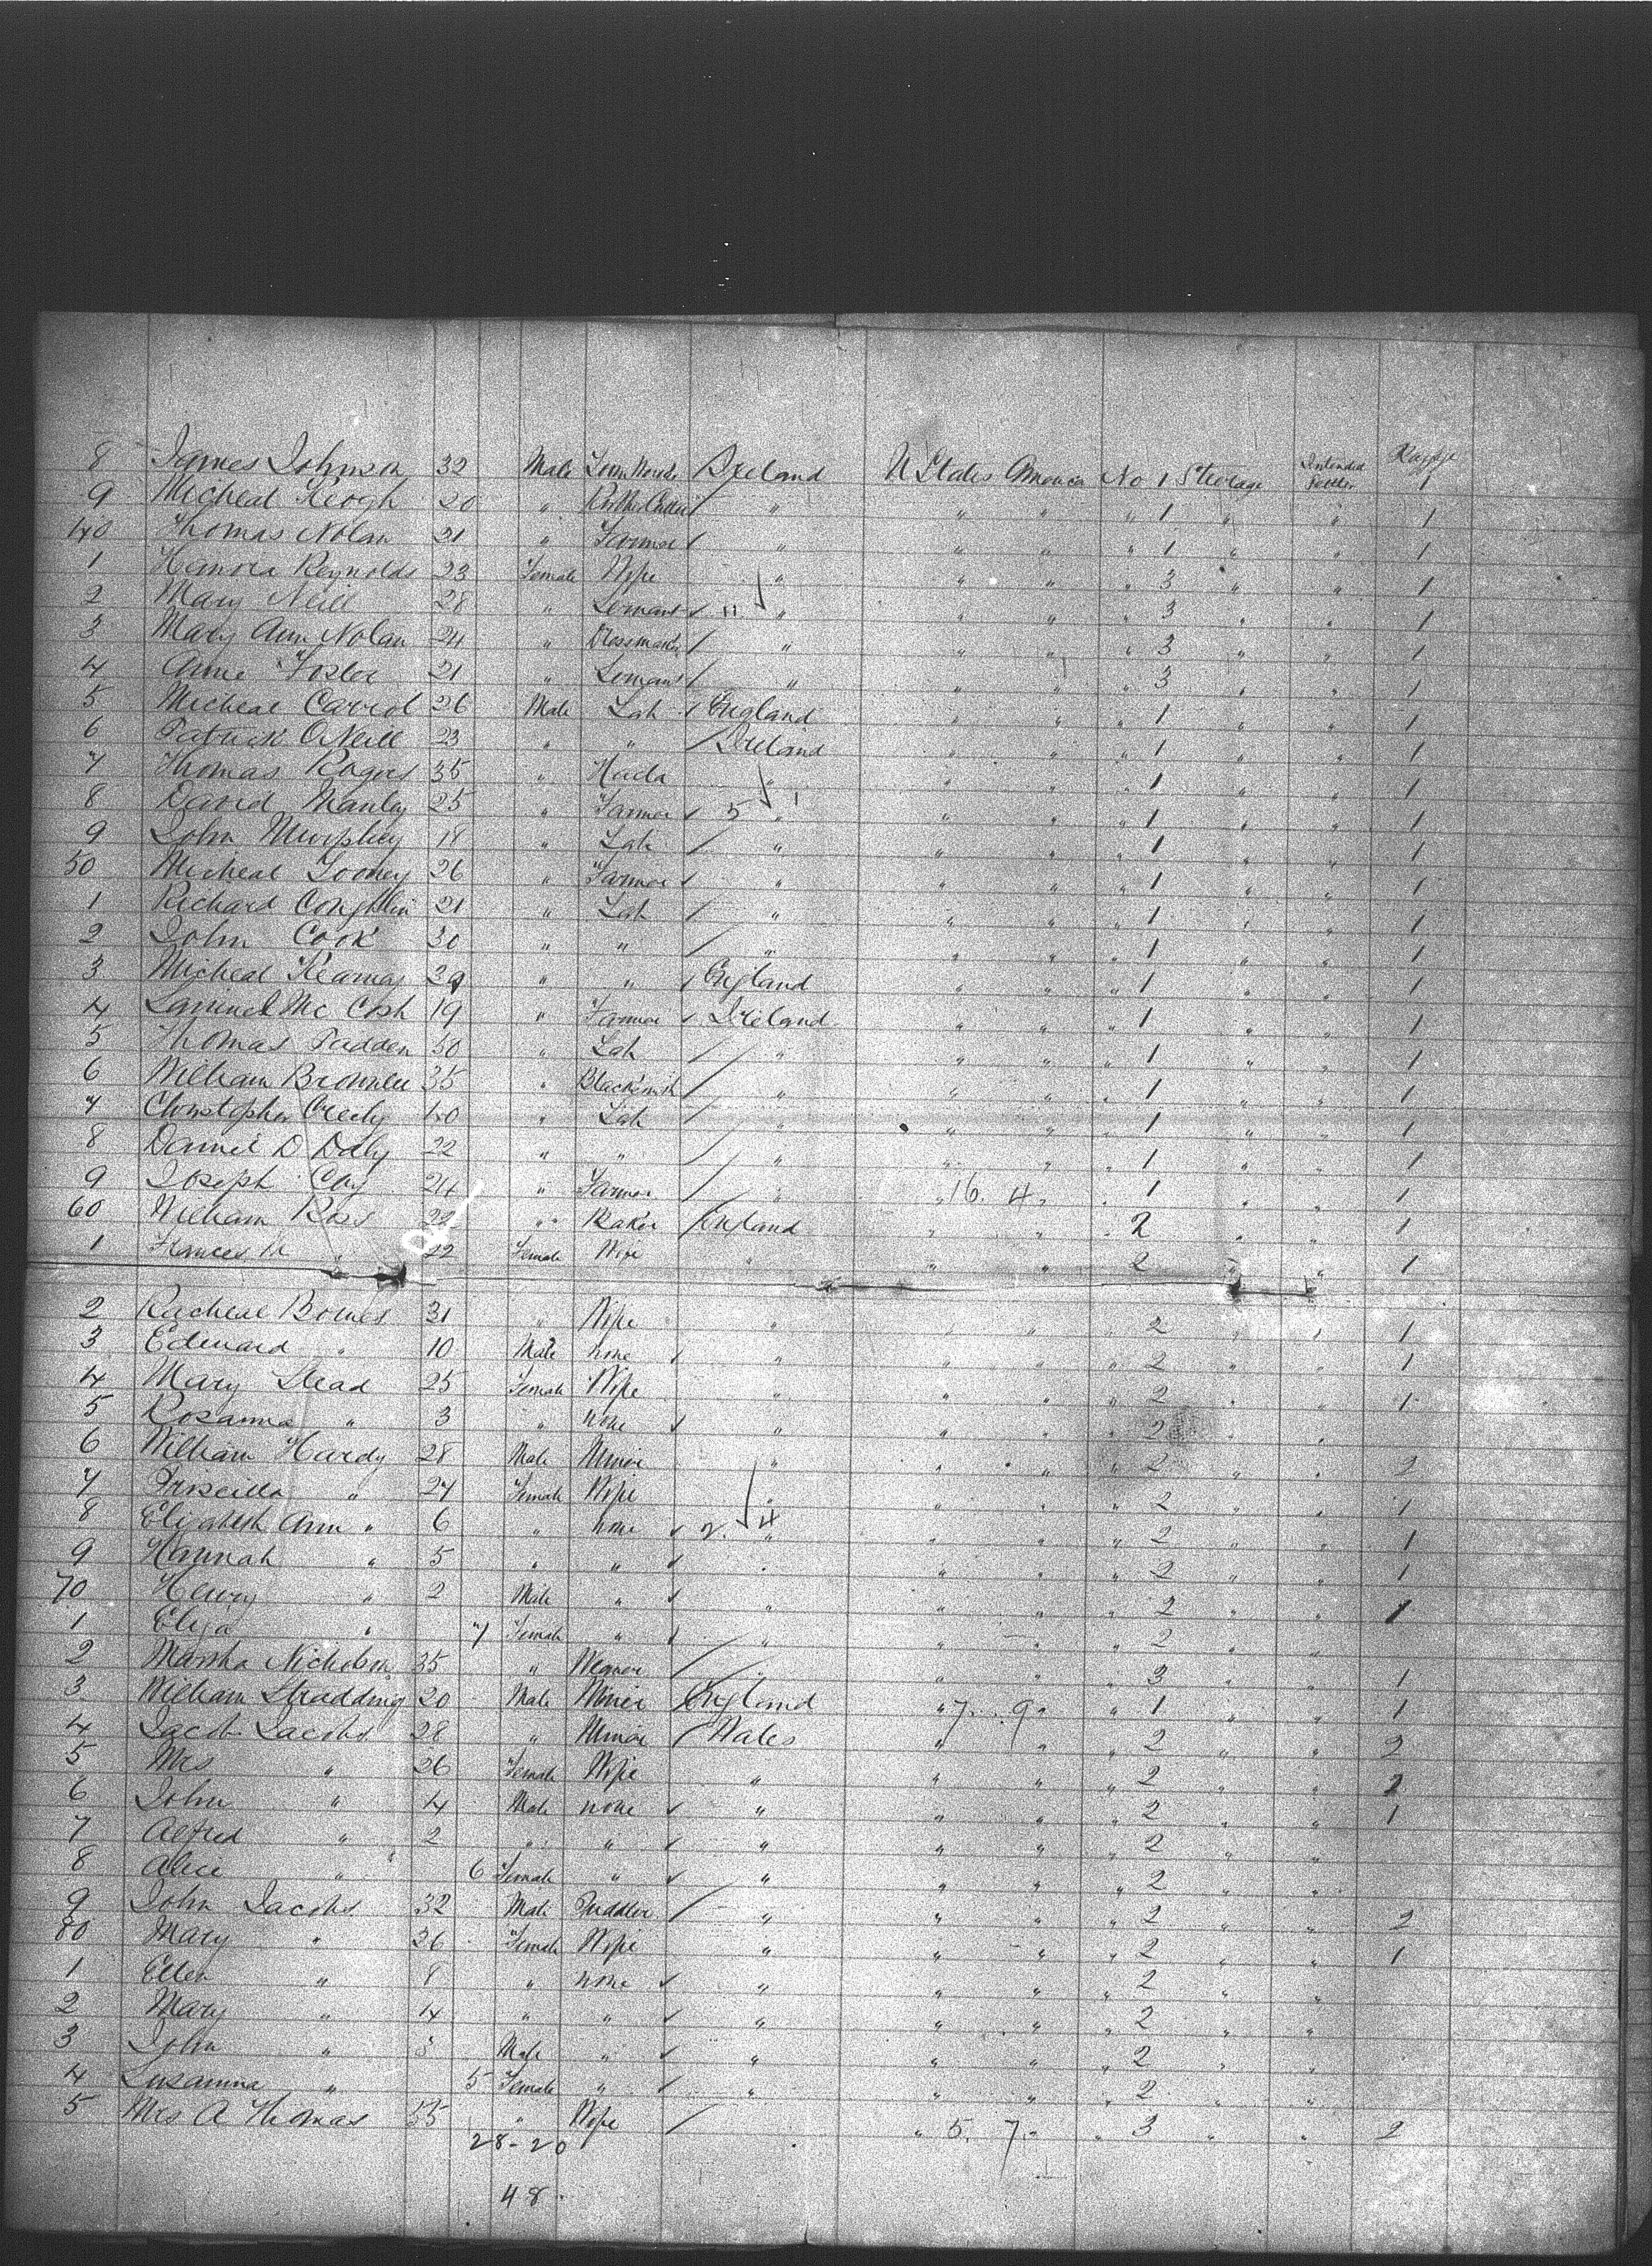 8 James Johnson 32 Male Ireland U States America No 1 Steerage Intended Settler 1
9 Micheal Keogh 20 " " " " " 1 " " 1
40 Thomas Nolan 21 " Farmer " " " " 1 " " 1
1 Hanora Reynolds 23 Female Wife " " " " 3 " " 1
2 Mary Neill 28 " Servant 11 " " " " 3 " " 1
3 Mary Ann Nolan 24 " Dressmaker " " " " 3 " " 1
4 Anne Foster 21 " Servant " " " " 3 " " 1
5 Micheal Carrol 26 Male Lab England " " " 1 " " 1
6 Patrick ONeill 23 " " Ireland " " " 1 " " 1
7 Thomas Rogers 35 " " " " " 1 " " 1
8 David Manley 25 " Farmer 5 1 " " " " 1 " " 1
9 John Murphey 18 " Lab " " " " 1 " " 1
50 Micheal Looney 26 " Farmer " " " " 1 " " 1
1 Richard Coughlin 21 " Lab " " " " 1 " " 1
2 John Cook 30 " " " " " " 1 " " 1
3 Micheal Kearney " " England " " " 1 " " 1
4 Samuel Mc Cosh 19 " Farmer Ireland " " " 1 " " 1
5 Thomas Padden 50 " Lab " " " " 1 " " 1
6 William Brownlee 35 " Blacksmith " " " " 1 " " 1
7 Christopher 40 " Lab " " " " 1 " " 1
8 Daniel D Daly 22 " " " " " " 1 " " 1
9 Joseph 24 " Farmer " " 16. 4 " " 1 " " 1
60 William Ross 22 " Baker England " " " 2 " " 1
1 Frances M " 22 Female Wife " " " 2 " " 1
2 Racheal 31 " Wife " " " " 2 " " 1
3 Edward " 10 Male none " " " " 2 " 1
4 Mary Stead 25 Female Wife " " " " 2 " " 1
5 Rosanna " 3 " none " " " 2 " "
6 William Hardy 28 Male Minor " " " " 2 " " 2
7 Priscilla " 27 Female Wife " " " " 2 " " 1
8 Elizabeth Ann " 6 " none 2. 4 " " " " 2 " " 1
9 Hannah " 5 " " " " " " 2 " " 1
70 Henry " 2 Male " " " " " 2 " " 1
1 Eliza " 7 Female " " " " " 2 " "
2 Martha Nicholson 35 " " " " " 3 " " 1
3 William Stradding 20 Male Miner England " 7. 9 " " 1 " " 1
4 Jacob Jacobs 28 " Minor Wales " " " 2 " " 2
5 Mrs " 26 Female Wife " " " " 2 " " 2
6 John " 4 Male none " " " " 2 " " 1
7 Alfred " 2 " " " " " " 2 " "
8 Alice " 6 Female " " " " " 2 " "
9 John Jacobs 32 Male Puddler " " " " 2 " " 2
80 Mary " 26 Female Wife " " " " 2 " " 1
1 Ellen " 8 " none " " " " 2 " "
2 Mary " 4 " " " " " " 2 " "
3 John " 3 Male " " " " " 2 " "
4 Susanna " 5 Female " " " " " 2 " "
5 Mrs A Thomas " Wife " 5. 7 " " 3 " " 2
28-20
48